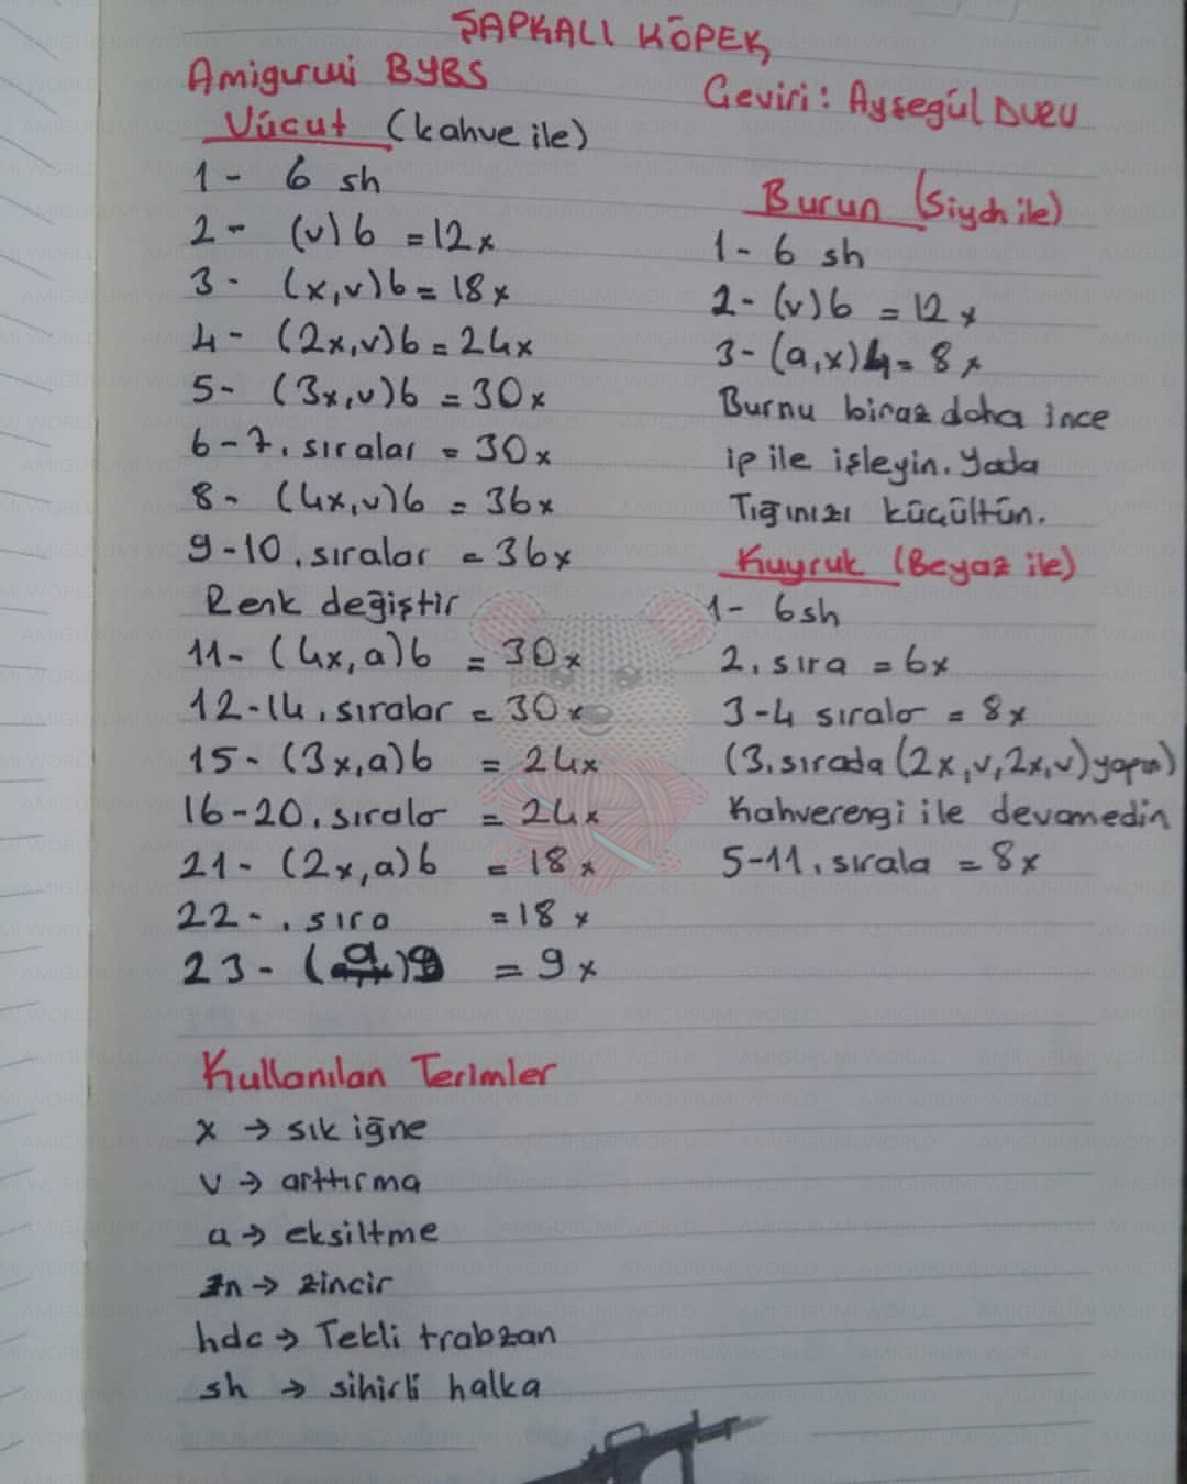 ŞAPKALI KÖPEK
Amigurumi BYBS
Çeviri: Ayşegül Duru
Vücut (kahve ile)
1- 6 sh
2- (v)6 =12x
3- (x,v)6=18x
4- (2x,v)6=24x
5- (3x,v)6=30x
6-7. sıralar = 30x
8- (4x,v)6 = 36x
9-10. sıralar = 36x
Renk değiştir
11- (4x,a)6 = 30x
12-14. sıralar = 30x
15- (3x,a)6 = 24x
16-20. sırala = 24x
21- (2x,a)6 = 18x
22-. sıra =18x
23- (a)9 = 9x
Burun (Siyah ile)
1- 6 sh
2- (v)6 = 12x
3- (a,x)4= 8x
Burnu biraz daha ince
ip ile işleyin. Yada
Tığınızı küçültün.
Kuyruk (Beyaz ile)
1- 6sh
2. sıra = 6x
3-4 sırala = 8x
(3.sırada (2x,v,2x,v) yapın)
Kahverengi ile devamedin
5-11. sırala = 8x
Kullanılan Terimler
x → sık iğne
v → arttırma
a → eksiltme
zn → zincir
hdc → Tekli trabzan
sh → sihirli halka
AMIGURUMI WORLD